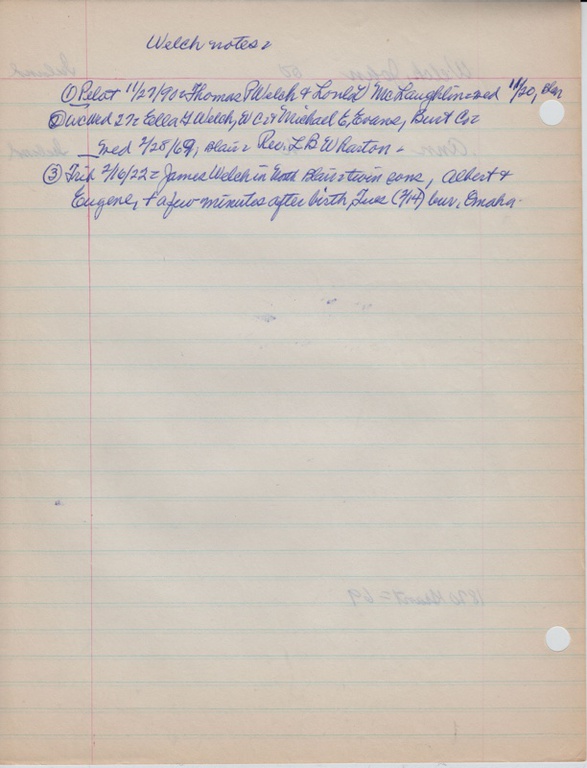 Welch notes=
① Pilot 11/27/90= Thomas P Welch & Loula L McLaughlin= wed 11/20, Blair
② wc wed 27= Ella G Welch, W C & Michael E, Evans, Burt Co=
wed 2/28/69, Blair= Rev. L B Wharton=
③ Trib 2/16/22= James Welch in Blair= twin sons, Albert &
Eugene, + a few minutes after birth, Tues (2/14) bur. Omaha.